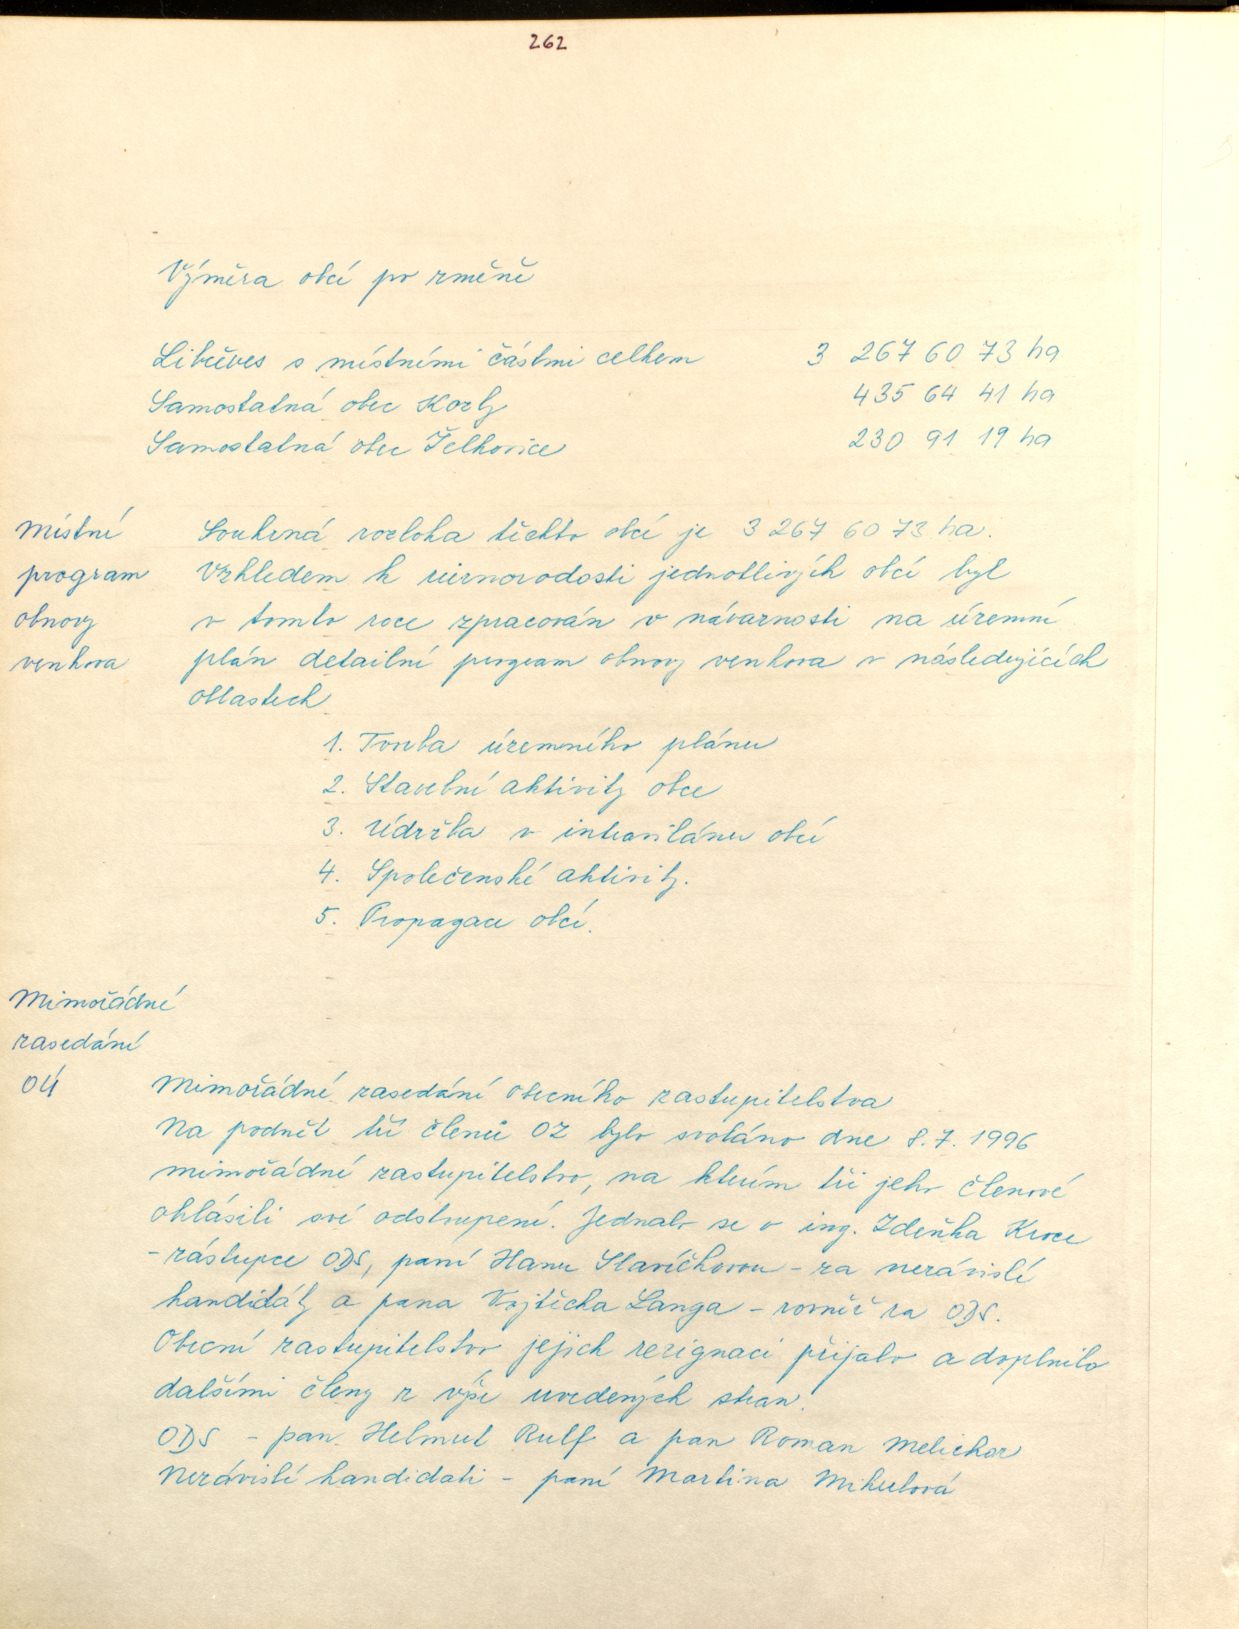 262
Výměra obcí po změně
Libčeves s místními částmi celkem 3 267 60 73 ha
Samostatná obec Kozly 435 64 41 ha
Samostatná obec Želkovice 230 91 19 ha
Místní
program
obnovy
venkova
Souhrná rozloha těchto obcí je 3 267 60 73 ha.
Vzhledem k různorodosti jednotlivých obcí byl
v tomto roce zpracován v návaznosti na územní
plán detailní program obnovy venkova v následujících
oblastech
1. Tvorba územního plánu
2. Stavební aktivity obce
3. Údržba v intravilánu obcí
4. Společenské aktivity.
5. Propagace obcí.
Mimořádné
zasedání
OÚ
Mimořádné zasedání obecního zastupitelstva
Na podnět tří členů OZ bylo svoláno dne 8.7.1996
mimořádné zastupitelstvo, na kterém tři jeho členové
ohlásili své odstoupení. Jednalo se o ing. Zdeňka Kroce
- zástupce ODS, paní Hanu Slavíčkovou - za nezávislé
kandidáty a pana Vojtěcha Langa - rovněž za ODS.
Obecní zastupitelstvo jejich rezignaci přijalo a doplnilo
dalšími členy z výše uvedených stran.
ODS - pan Helmut Rulf a pan Roman Melichar
Nezávislí kandidati - paní Martina Mikulová